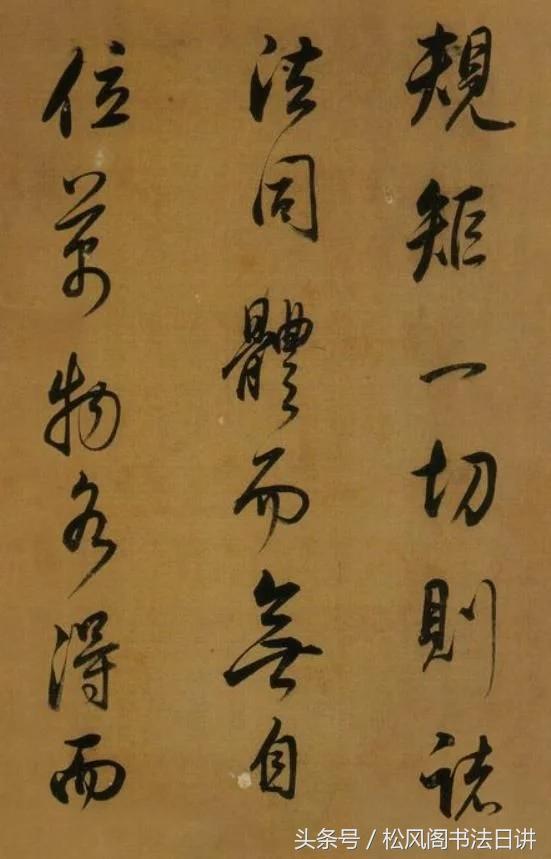 規矩一切則諸
法同體而無自
位萬物各得而
头条号／松风阁书法日讲